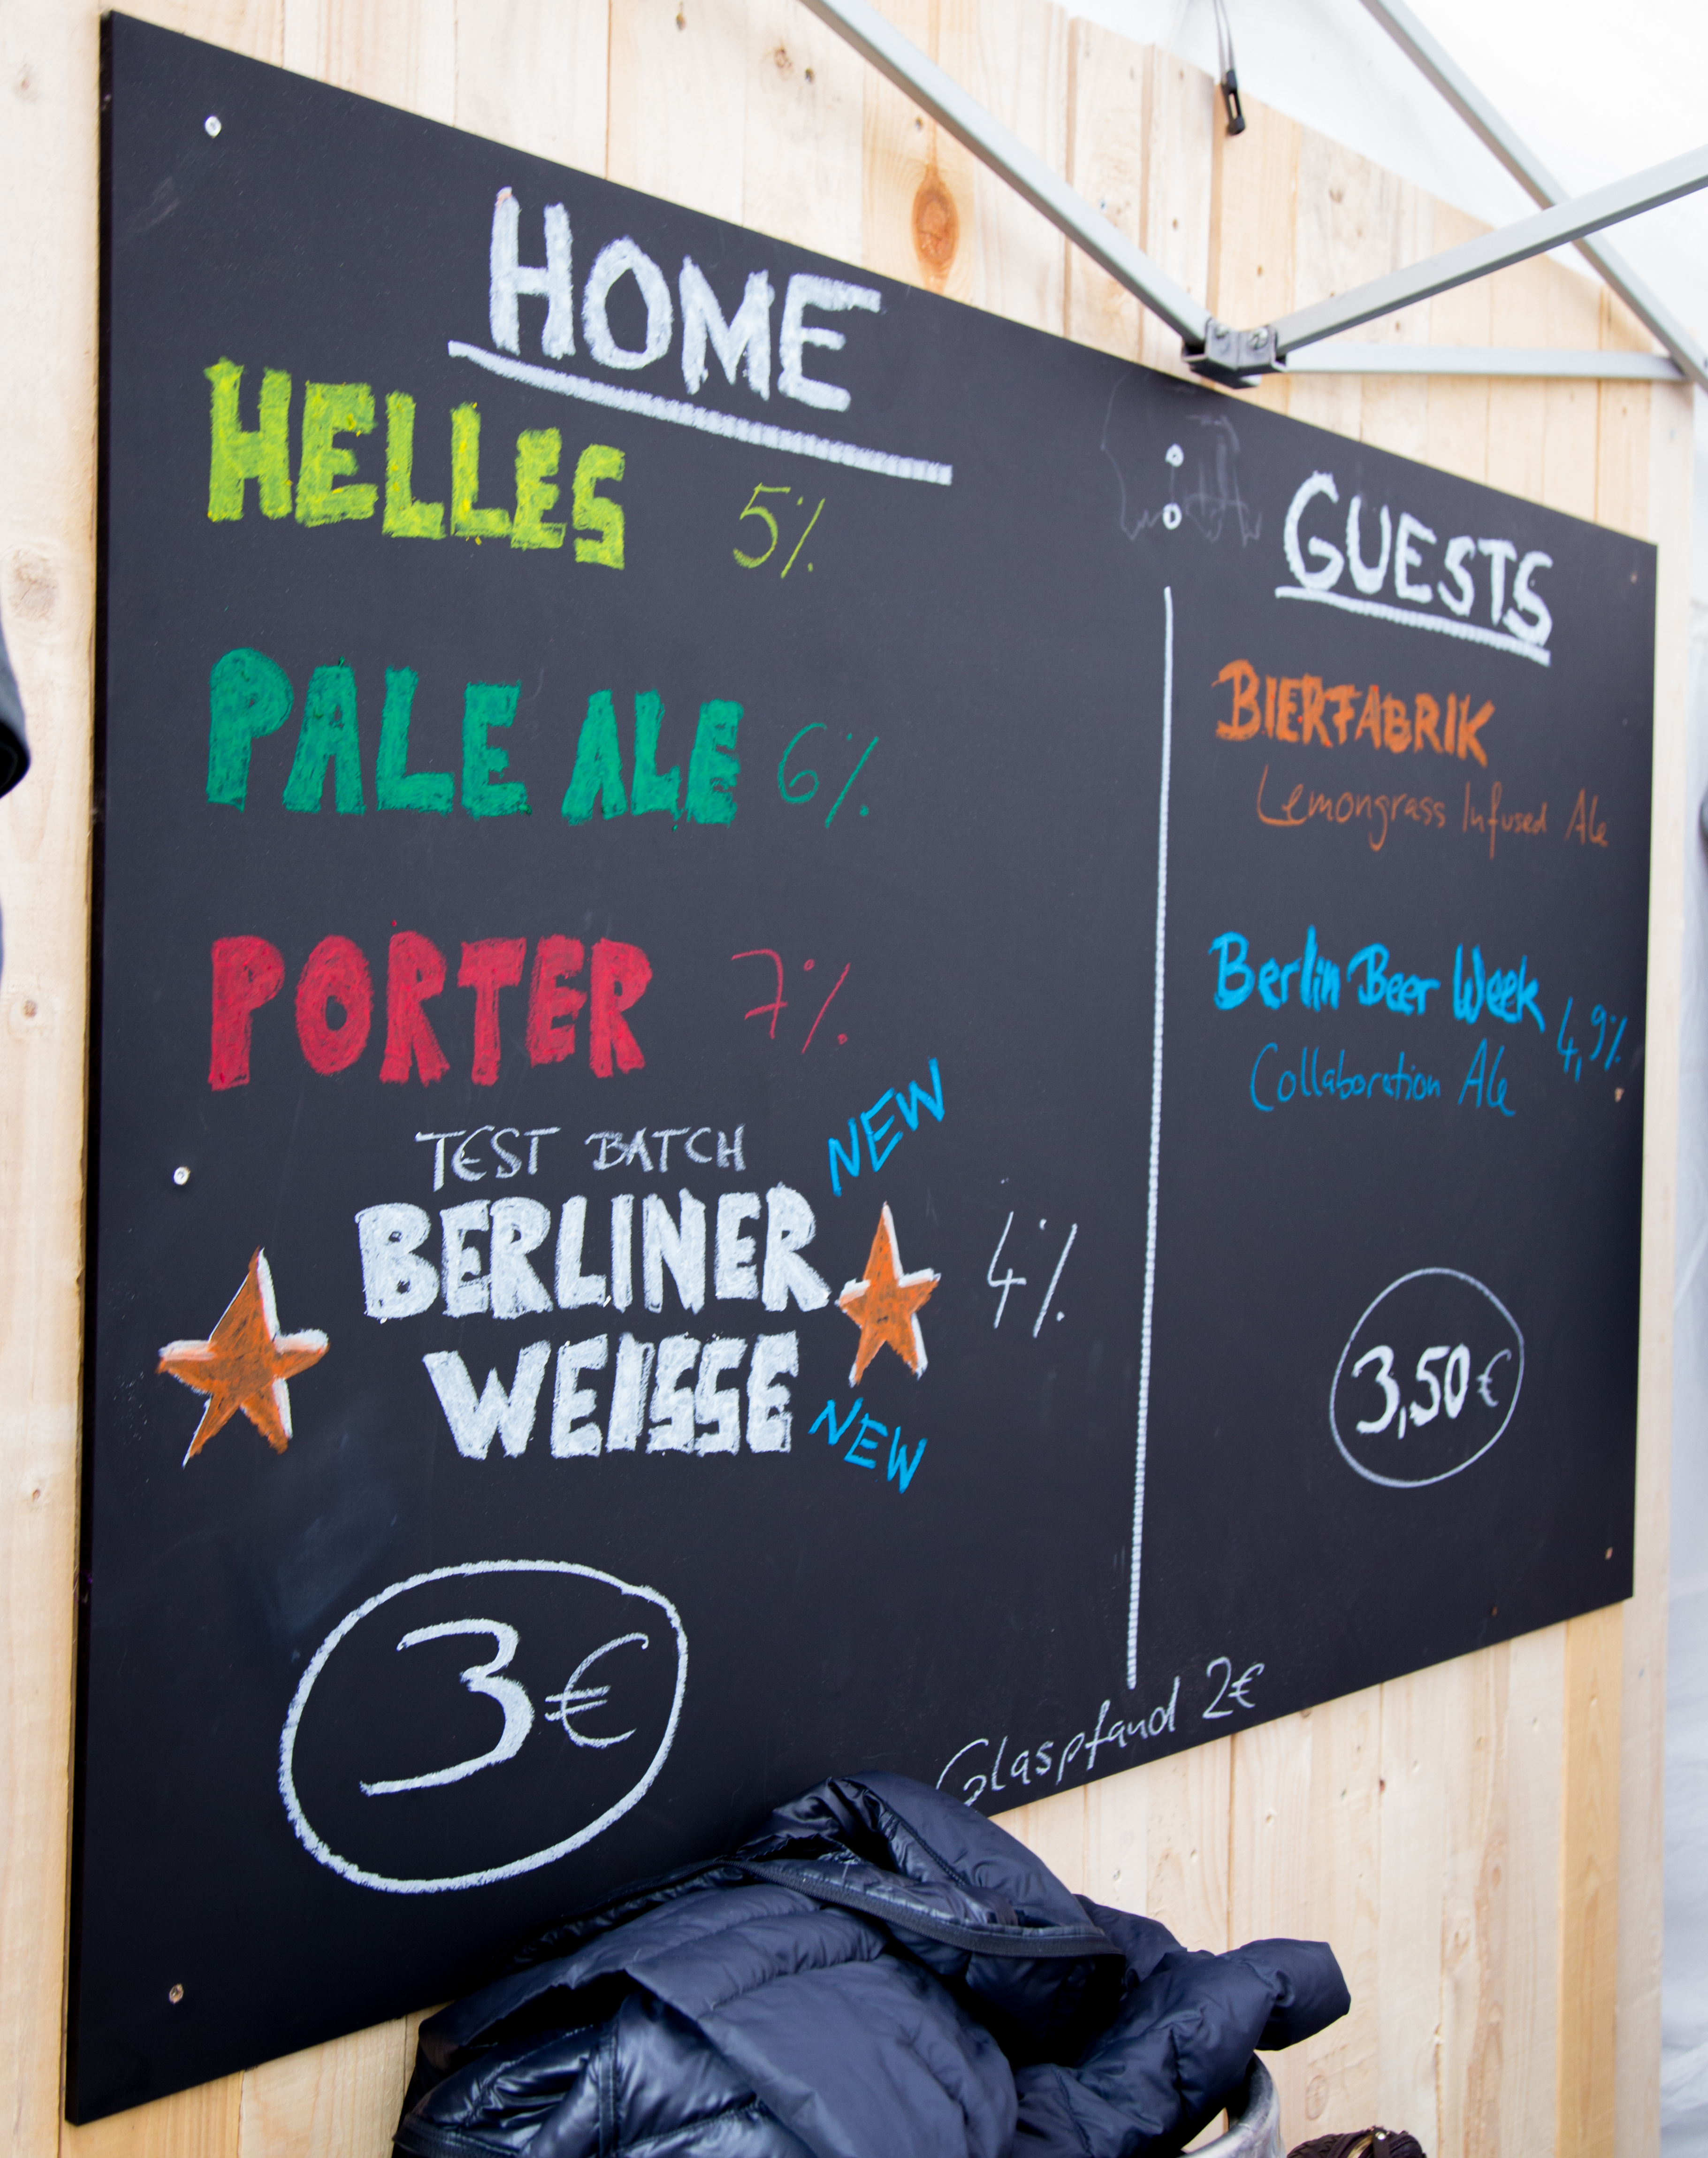 HOME
HELLES 5%
PALE ALE 6%
PORTER 7%
TEST BATCH NEW
BERLINER
WEISSE 4%
NEW
3€
GUESTS
BIERFABRIK
Lemongrass Infused Ale
Berlin Beer Week 4,9%
Collaboration Ale
3,50€
Glaspfand 2€